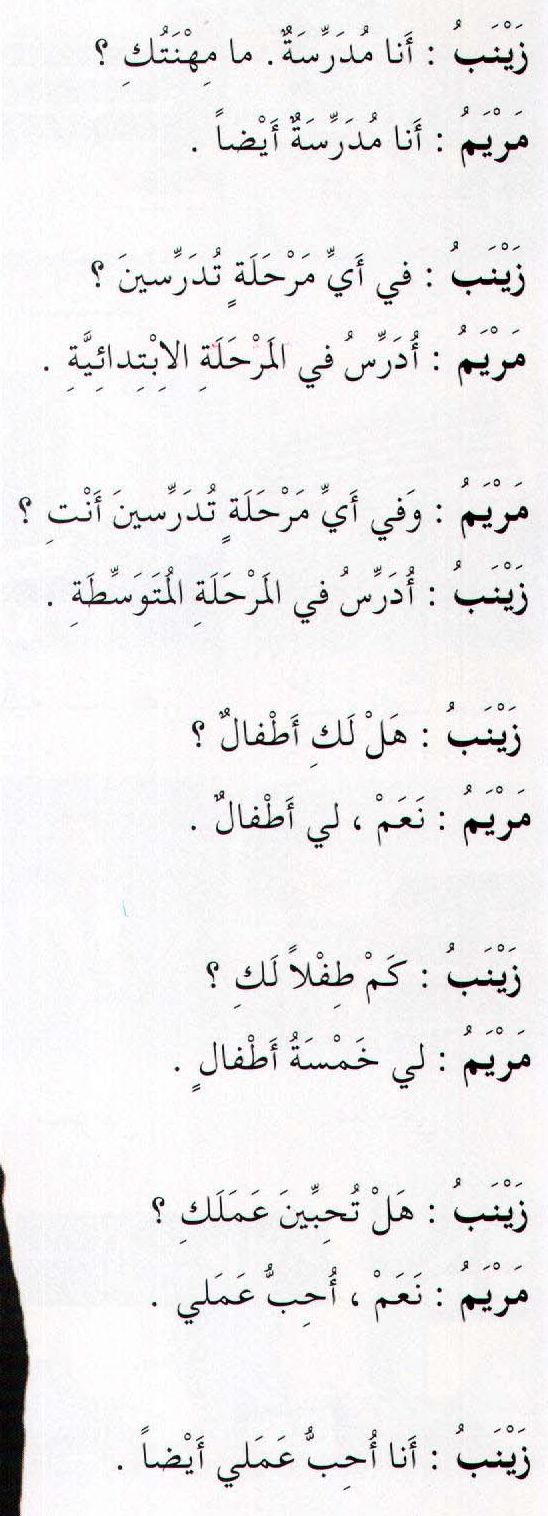 زَيْنَبُ : أَنا مُدَرِّسَةٌ. ما مِهْنَتُكِ ؟
مَرْيَمُ : أَنا مُدَرِّسَةٌ أَيْضاً .
زَيْنَبُ : في أَيِّ مَرْحَلَةٍ تُدَرِّسينَ ؟
مَرْيَمُ : أُدَرِّسُ في المَرْحَلَةِ الاِبْتِدائِيَّةِ .
مَرْيَمُ : وَفي أَيِّ مَرْحَلَةٍ تُدَرِّسينَ أَنْتِ ؟
زَيْنَبُ : أُدَرِّسُ في المَرْحَلَةِ المُتَوَسِّطَةِ .
زَيْنَبُ : هَلْ لَكِ أَطْفالٌ ؟
مَرْيَمُ : نَعَمْ ، لي أَطْفالٌ .
زَيْنَبُ : كَمْ طِفْلاً لَكِ ؟
مَرْيَمُ : لي خَمْسَةُ أَطْفالٍ .
زَيْنَبُ : هَلْ تُحِبِّينَ عَمَلَكِ ؟
مَرْيَمُ : نَعَمْ ، أُحِبُّ عَمَلي .
زَيْنَبُ : أَنا أُحِبُّ عَمَلي أَيْضاً .